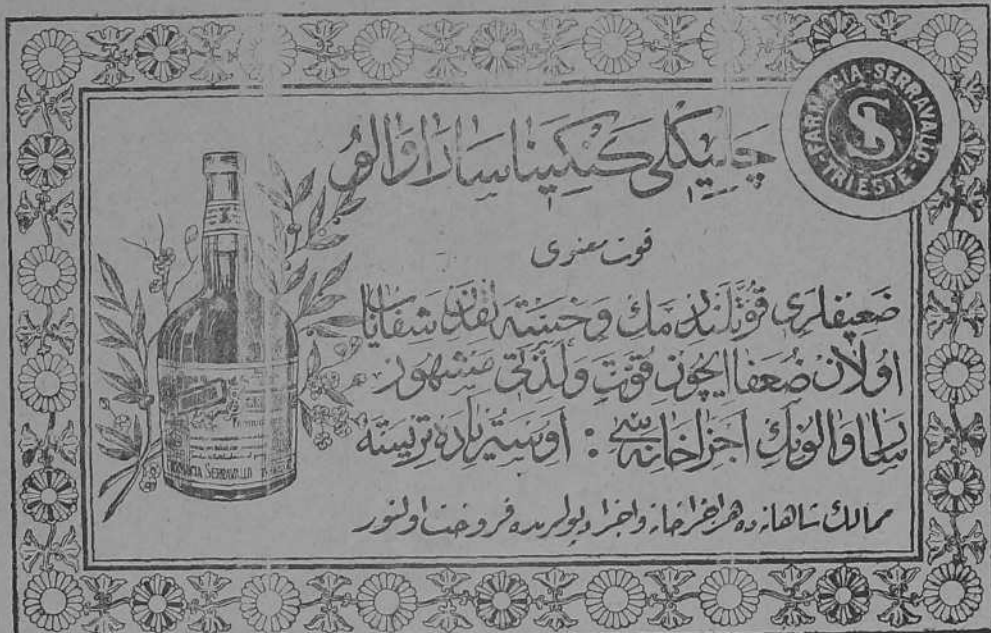 FARMACIA-SERRAVALLO
TRIESTE
چلیکلی کنکینا ساراوالو
قوت معنوی
ضعیفلری قوتلندیرمك و خسته لقدن شفایاب
اولان ضعفا ایچون قوت و لذتی مشهور
ساراوالونك اجزاخانه سی : اوستریاده تریسته
ممالك شاهانه ده هر اجزاخانه و اجزا دپولرنده فروخت اولنور
FARMACIA SERRAVALLO